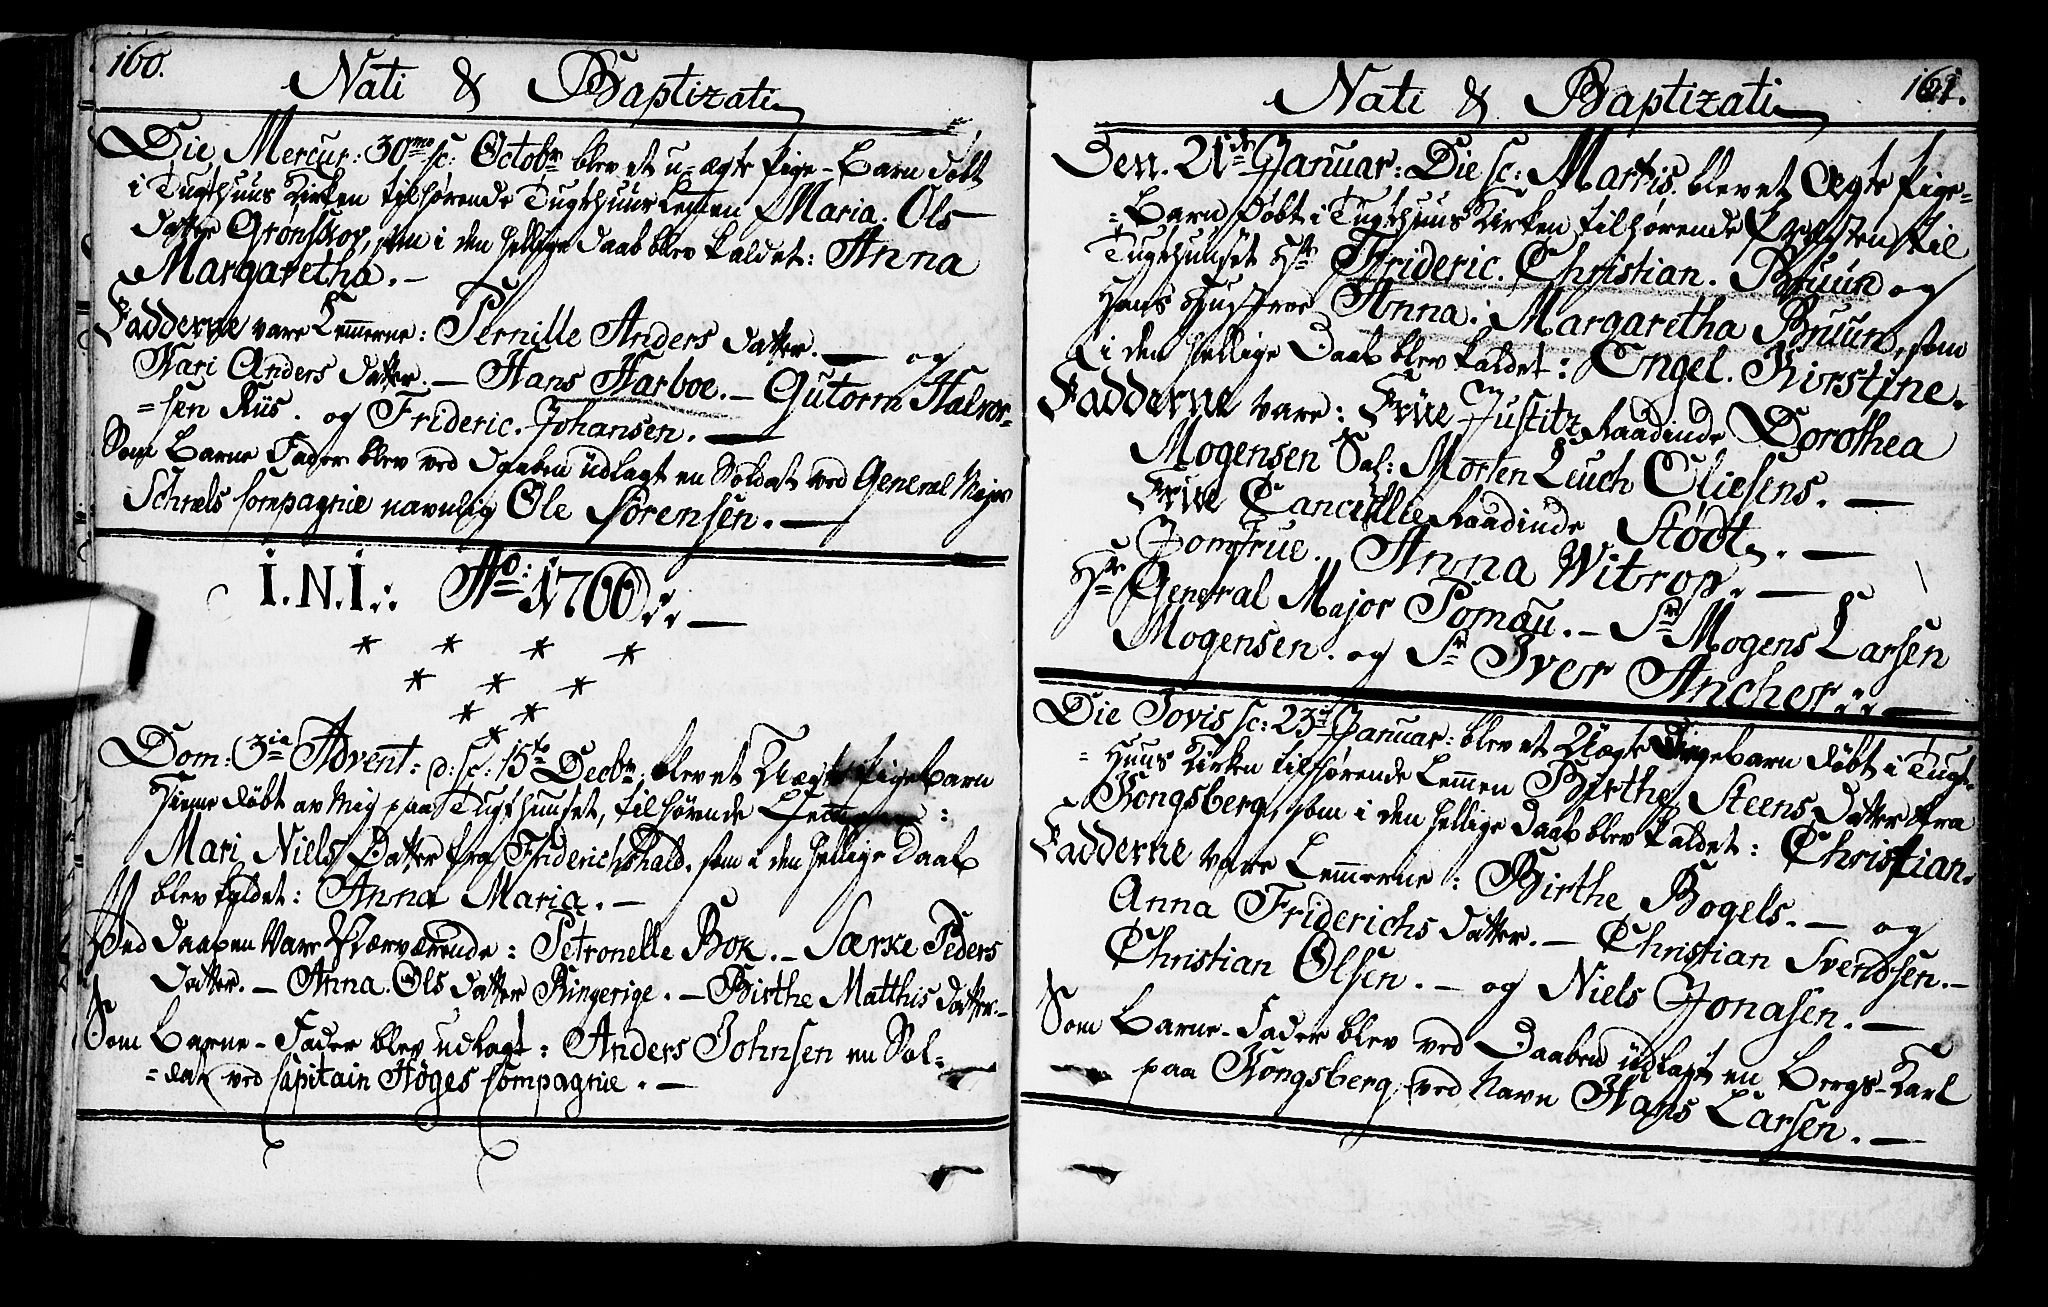 160.
Nati & Baptizati
Die Mercur: 30mo sc: Octobr blev et u-ægte Pige-Barn døbt
i Tugthuus Kirken tilhørende Tugthuus Lemen Maria. Ols
datter Grønskov, som i den hellige daab blev kaldet: Anna
Margaretha. -
Fadderne vare Lemmerne: Pernille Anders datter. - og
Kari Anders datter. - Hans Harboe. - Gutorm Halvor-
=sen Riis. og Frideric. Johansen. -
Som Barne Fader blev ved Daaben üdlagt en Soldat ved General Major
Schnels Compagnie navnlig Ole Sørensen. -
I.N.I.: Ao: 1766 :. -
* * * *
* * *
* *
*
Dom: 3ia Advent: d: sc: 15te Decbr. blev et Uægte Pigebarn
Hieme døbt av Mig paa Tugthuuset, tilhørende
Mari Niels Datter fra Friderichshald. som i den hellige Daab
blev kaldet: Anna Maria. -
Ved Daaben vare Nærværende: Petronelle Bok. - Særke Peders
datter. - Anna. Ols datter Ringerige. - Birthe Matthis datter. -
Som Barne-Fader blev udlagt: Anders Johnsen en Sol-
=dat ved Capitain Høges Compagnie. -
161.
Nati & Baptizati
Den. 21de Januar: Die sc: Martis. blev et Ægte Pige-
=Barn døbt i Tugthuus Kirken tilhørende Præsten til
Tugthuuset Hr Frideric. Christian. Bruun og
Hans Hustroe Anna. Margaretha Bruun, som
i den hellige Daab blev kaldet: Engel. Kirstine.
Fadderne vare: Früe Justitz Raadinde Dorothea
Mogensen Sal: Morten Leuch Eliesens. -
Früe Cancellie Raadinde Stødt. -
Jomfrue. Anna Witrop. -
Hr General Major Pomau. - Sr Mogens Larsen
Mogensen. og Sr Iver Ancher :. -
Die Jovis sc: 23de Januar: blev et Uægte Dregebarn døbt i Tugt-
=huus Kirken tilhørende Lemmen Birthe Steens datter fra
Kongsberg, som i den hellige Daab blev kaldet: Christian.
Fadderne vare Lemmerne: Birthe Bogels. - og
Anna Friderichs datter. - Christian Svendsen. -
Christian Olsen. - og Niels Jonasen. -
Som Barne-Fader blev ved Daaben üdlagt en Bergs-Karl
paa Kongsberg, ved Navn Hans Larsen. -